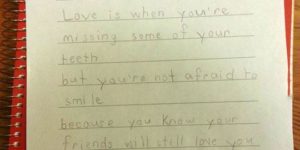 Love is when you're
missing some of your
teeth
but you're not afraid to
smile
because you know your
friends will still love you